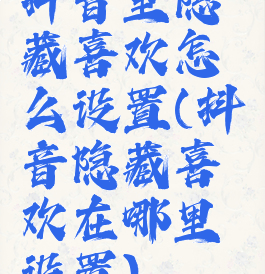 抖音里隐
藏喜欢怎
么设置(抖
音隐藏喜
欢在哪里
设置)